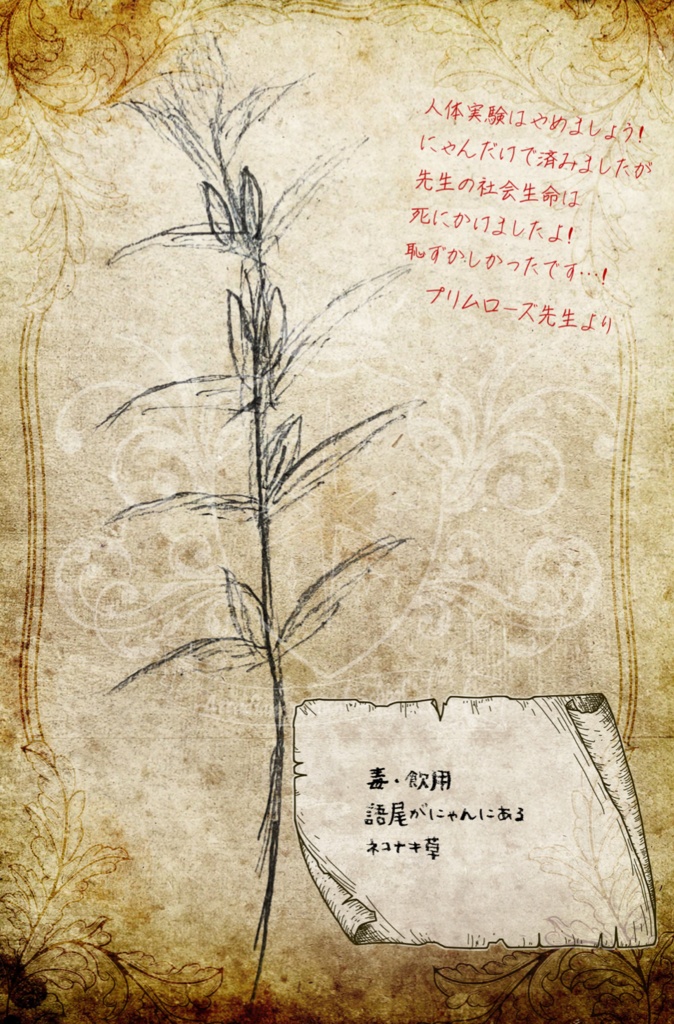 人体実験はやめましょう!
にゃんだけで済みましたが
先生の社会生命は
死にかけましたよ!
恥ずかしかったです…!
プリムローズ先生より
毒・飲用
語尾がにゃんにある
ネコナキ草